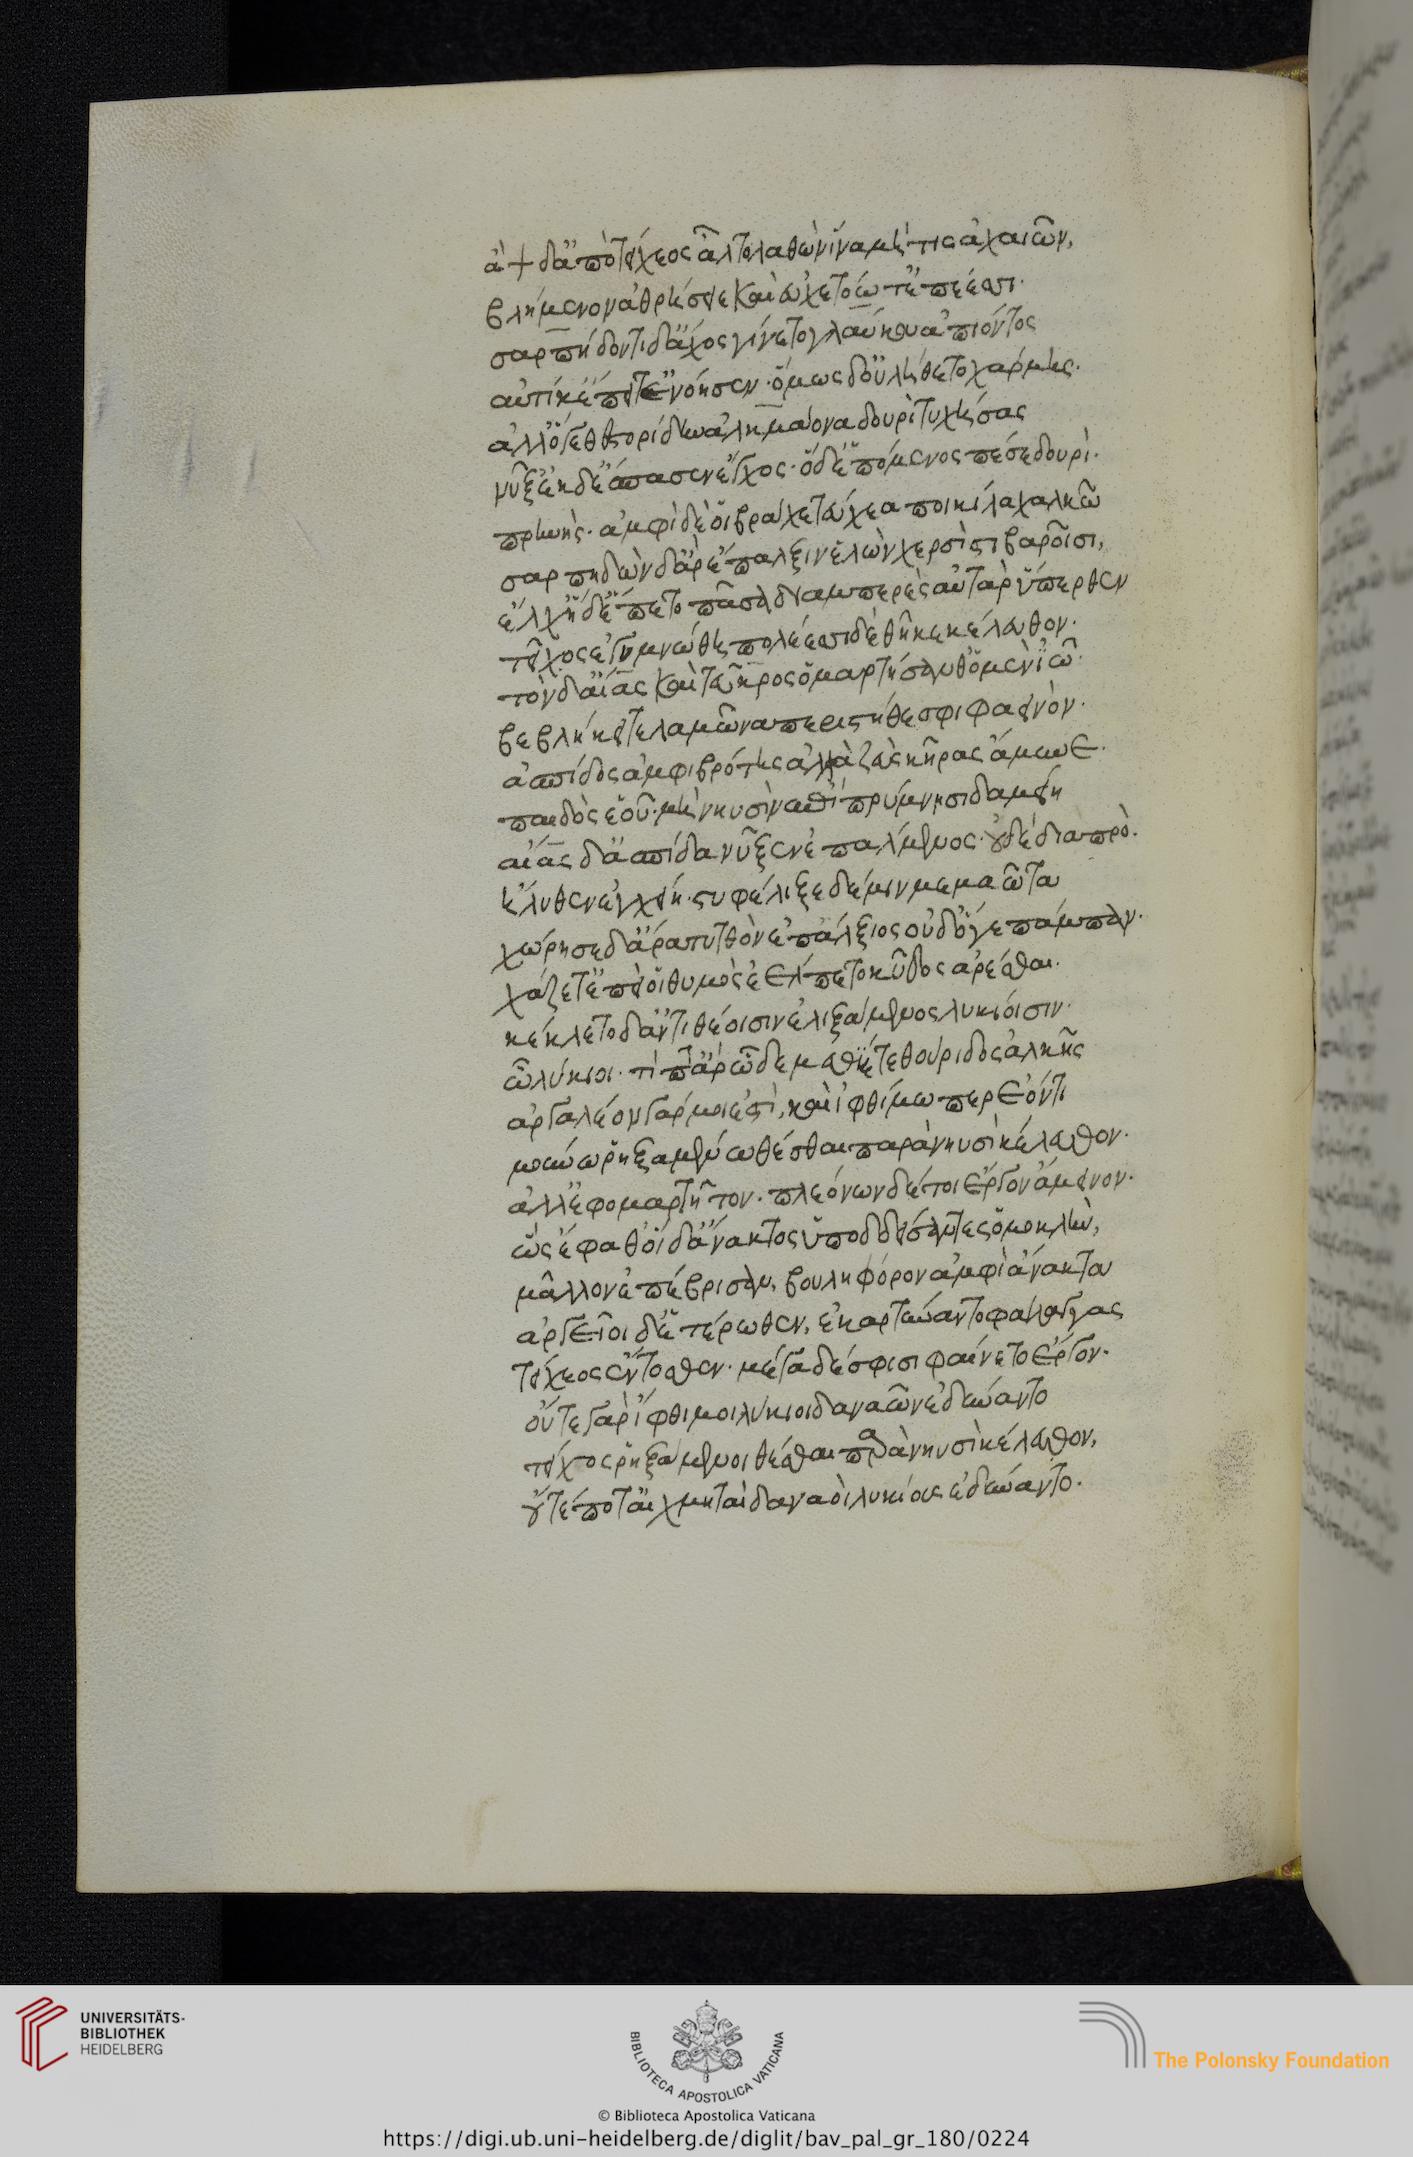 ἂψ δ᾽ ἀπὸ τείχεος ἆλτο λαθὼν ἵνα μή τις ἀχαιῶν,
βλήμενον ἀθρήσειε καὶ εὐχετόωτ᾽ ἐπέεσσι·
σαρπήδοντι δ᾽ ἄχος γίνετο γλαύκου ἀπιόντος
αὐτίκ᾽ ἐπεί τ᾽ ἐνόησεν· ὅμως δ᾽ οὐ λήθετο χάρμης·
ἀλλ᾽ ὅγε θεστορίδην ἀλκμάονα δουρὶ τυχήσας
νύξ᾽ ἐκ δ᾽ ἔσπασεν ἔγχος· ὁ δ᾽ ἑπόμενος πέσε δουρὶ·
πρηνής· ἀμφὶ δέ οἱ βράχε τεύχεα ποικίλα χαλκῶ
σαρπηδὼν δ᾽ ἄρ᾽ ἔπαλξιν ἑλὼν χερσὶ στιβαρῆισι,
ἕλχ᾽ ἡ δ᾽ ἕσπετο πᾶσα διαμπερὲς αὐτὰρ ὕπερθεν
τεῖχος ἐγυμνώθη, πολέεσσι δὲ θῆκε κέλευθον·
τὸν δ᾽ αἴας καὶ τεῦκρος ὁμαρτήσανθ᾽ ὁ μὲν ἰῶ·
βεβλήκει τελαμῶνα περὶ στήθεσφι φαεινὸν·
ἀσπίδος ἀμφιβρότης ἀλλὰ ζεὺς κῆρας ἄμυνε·
παιδὸς ἑοῦ· μὴ νηυσὶν ἔπι πρύμνησι δαμείη
αἴας δ᾽ ἀσπίδα νύξεν ἐπάλμενος· οὐδὲ διαπρὸ·
ἤλυθεν ἐγχείη· στυφέλιξε δέ μιν μεμαῶτα
χώρησε δ᾽ ἄρα τυτθὸν ἐπάλξιος οὐδ᾽ ὅγε πάμπαν·
χάζετ᾽ ἐπεί οἱ θυμὸς ἐέλπετο κῦδος ἀρέσθαι·
κέκλετο δ᾽ ἀντιθέοισιν ἑλιξάμενος λυκίοισιν·
ὦ λύκιοι· τί τ᾽ ἄρ᾽ ὧδε μεθίετε θούριδος ἀλκῆς
ἀργαλέον γάρ μοι ἐστὶ, καὶ ἰφθίμω περ ἐόντι
μούνω ῥηξαμένω θέσθαι παρὰ νηυσὶ κέλευθον·
ἀλλ᾽ ἐφομαρτῆτον· πλεόνων δέ τοι ἔργον ἄμεινον·
ὣς ἔφαθ᾽ οἱ δ᾽ ἄνακτος ὑποδδείσαντες ὁμοκλὴν,
μᾶλλον ἐπέβρισαν, βουληφόρον ἀμφὶ ἄνακτα
ἀργεῖοι δ᾽ ἑτέρωθεν, ἐκαρτύναντο φάλαγγας
τείχεος ἔντοσθεν· μέγα δέ σφισι φαίνετο ἔργον·
οὔτε γὰρ ἴφθιμοι λύκιοι δαναῶν ἐδύναντο
τεῖχος ῥηξάμενοι θέσθαι παρὰ νηυσὶ κέλευθον,
οὔτέ ποτ᾽ αἰχμηταὶ δαναοὶ λυκίους ἐδύναντο·
UNIVERSITÄTS-
BIBLIOTHEK
HEIDELBERG
BIBLIOTECA APOSTOLICA VATICANA
The Polonsky Foundation
© Biblioteca Apostolica Vaticana
https://digi.ub.uni-heidelberg.de/diglit/bav_pal_gr_180/0224